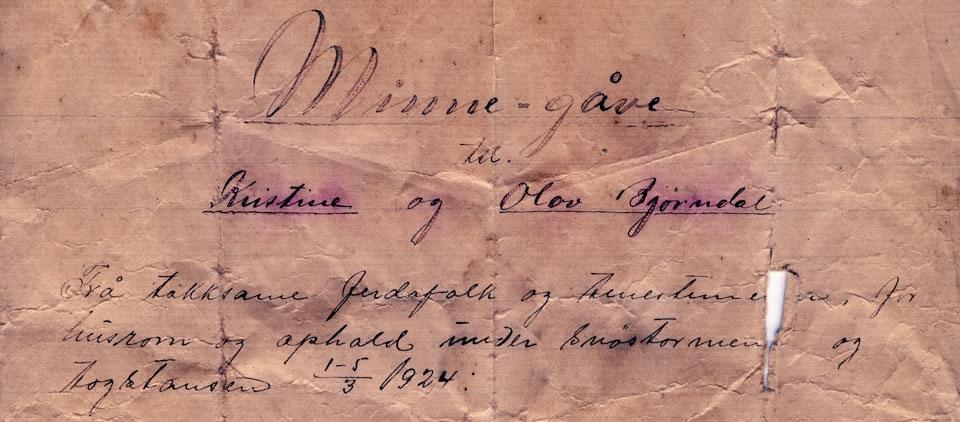 Minne-gåve
til.
Kristine og Olav Bjørndal
Frå takksame ferdafolk og tenestemenn, for
husrom og ophald under snöstormen og
togstansen 1-5/3 1924.